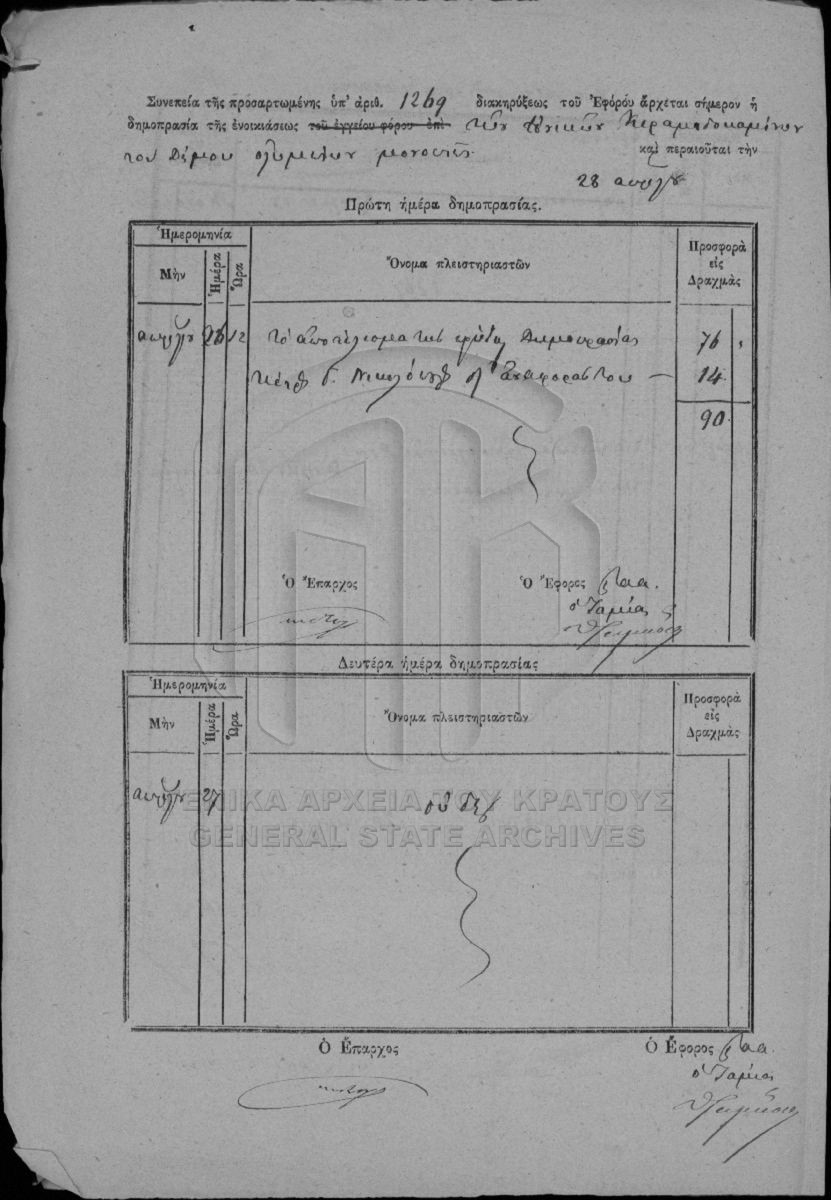 Συνεπεία τῆς προσαρτωμένης ὑπ' ἀριθ. 1269 διακηρύξεως τοῦ Ἐφόρου ἄρχεται σήμερον ἡ
δημοπρασία τῆς ἐνοικιάσεως τοῦ ἐγγείου φόρου ἐπὶ τῶν ἐθνικῶν Κεραμιδοκαμίνων
τοῦ Δήμου καὶ περαιοῦται τὴν
28
Πρώτη ἡμέρα δημοπρασίας.
Ἡμερομηνία
Μὴν
Ἡμέρα
Ὥρα
Ὄνομα πλειστηριαστῶν
Προσφορὰ
εἰς
Δραχμὰς
26 12 τὸ ἀποτέλεσμα τῆς Δημοπρασίας 76
14
90
Ὁ Ἔπαρχος Ὁ Ἔφορος
ὁ Ταμίας
Δευτέρα ἡμέρα δημοπρασίας
Ἡμερομηνία
Μὴν
Ἡμέρα
Ὥρα
Ὄνομα πλειστηριαστῶν
Προσφορὰ
εἰς
Δραχμὰς
27 οὐδεὶς
ΓΕΝΙΚΑ ΑΡΧΕΙΑ ΤΟΥ ΚΡΑΤΟΥΣ
GENERAL STATE ARCHIVES
Ὁ Ἔπαρχος Ὁ Ἔφορος
ὁ Ταμίας